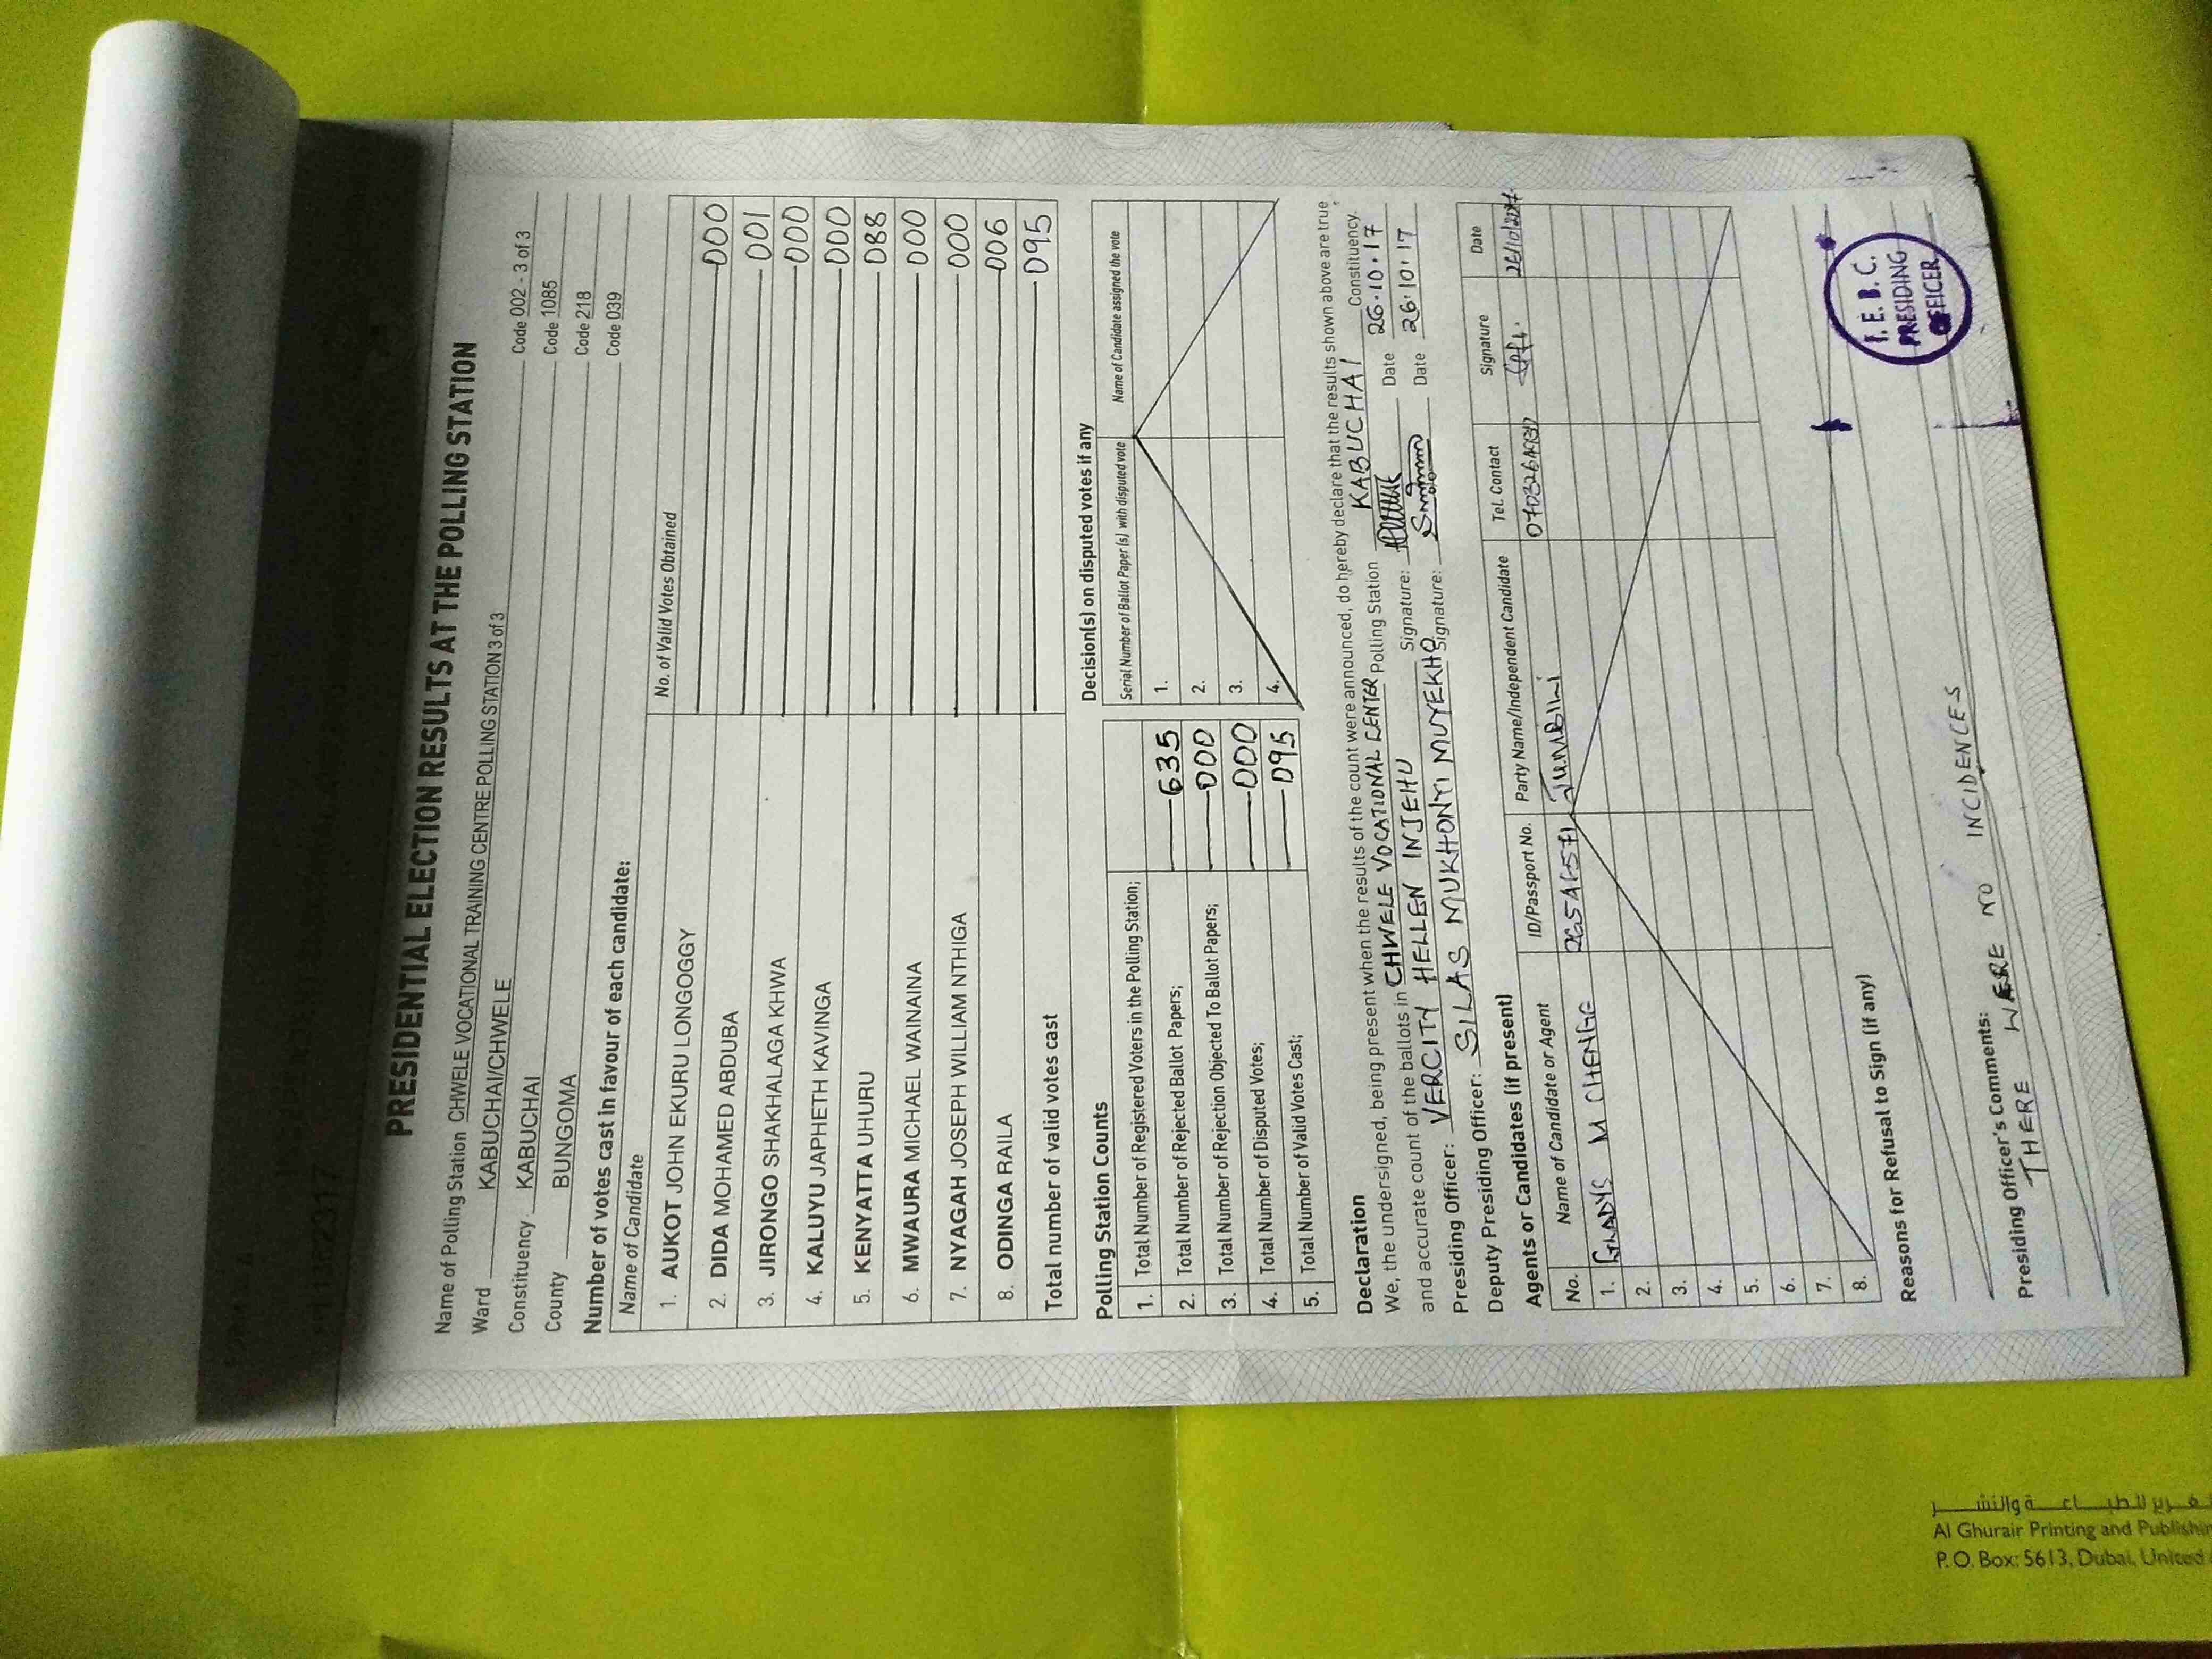 PRESIDENTIAL ELECTION RESULTS AT THE POLLING STATION
Name of Polling Station CHWELE VOCATIONAL TRAINING CENTRE POLLING STATION 3 of 3 Code 002 - 3 of 3
Ward KABUCHAI/CHWELE Code 1085
Constituency KABUCHAI Code 218
County BUNGOMA Code 039
Number of votes cast in favour of each candidate:
Name of Candidate No. of Valid Votes Obtained
1. AUKOT JOHN EKURU LONGOGGY 000
2. DIDA MOHAMED ABDUBA 001
3. JIRONGO SHAKHALAGA KHWA 000
4. KALUYU JAPHETH KAVINGA 000
5. KENYATTA UHURU 088
6. MWAURA MICHAEL WAINAINA 000
7. NYAGAH JOSEPH WILLIAM NTHIGA 000
8. ODINGA RAILA 006
Total number of valid votes cast 095
Polling Station Counts
1. Total Number of Registered Voters in the Polling Station; 635
2. Total Number of Rejected Ballot Papers; 000
3. Total Number of Rejection Objected To Ballot Papers; 000
4. Total Number of Disputed Votes; 000
5. Total Number of Valid Votes Cast; 095
Decision(s) on disputed votes if any
Serial Number of Ballot Paper (s) with disputed vote Name of Candidate assigned the vote
1.
2.
3.
4.
Declaration
We, the undersigned, being present when the results of the count were announced, do hereby declare that the results shown above are true
and accurate count of the ballots in CHWELE VOCATIONAL CENTER Polling Station KABUCHAI Constituency.
Presiding Officer: VERCITY HELLEN INJEHU Signature: Date 26.10.17
Deputy Presiding Officer: SILAS MUKHONYI MUYEKHO Signature: Date 26.10.17
Agents or Candidates (if present)
No. Name of Candidate or Agent ID/Passport No. Party Name/Independent Candidate Tel. Contact Signature Date
1. GLADYS M CHENGE Jumbilini 26/10/2017
2.
3.
4.
5.
6.
7.
8.
Reasons for Refusal to Sign (if any)
I. E. B. C.
PRESIDING
OFFICER
Presiding Officer's Comments:
THERE WERE NO INCIDENCES
Al Ghurair Printing and
P.O. Box: 5613, Dubai, United